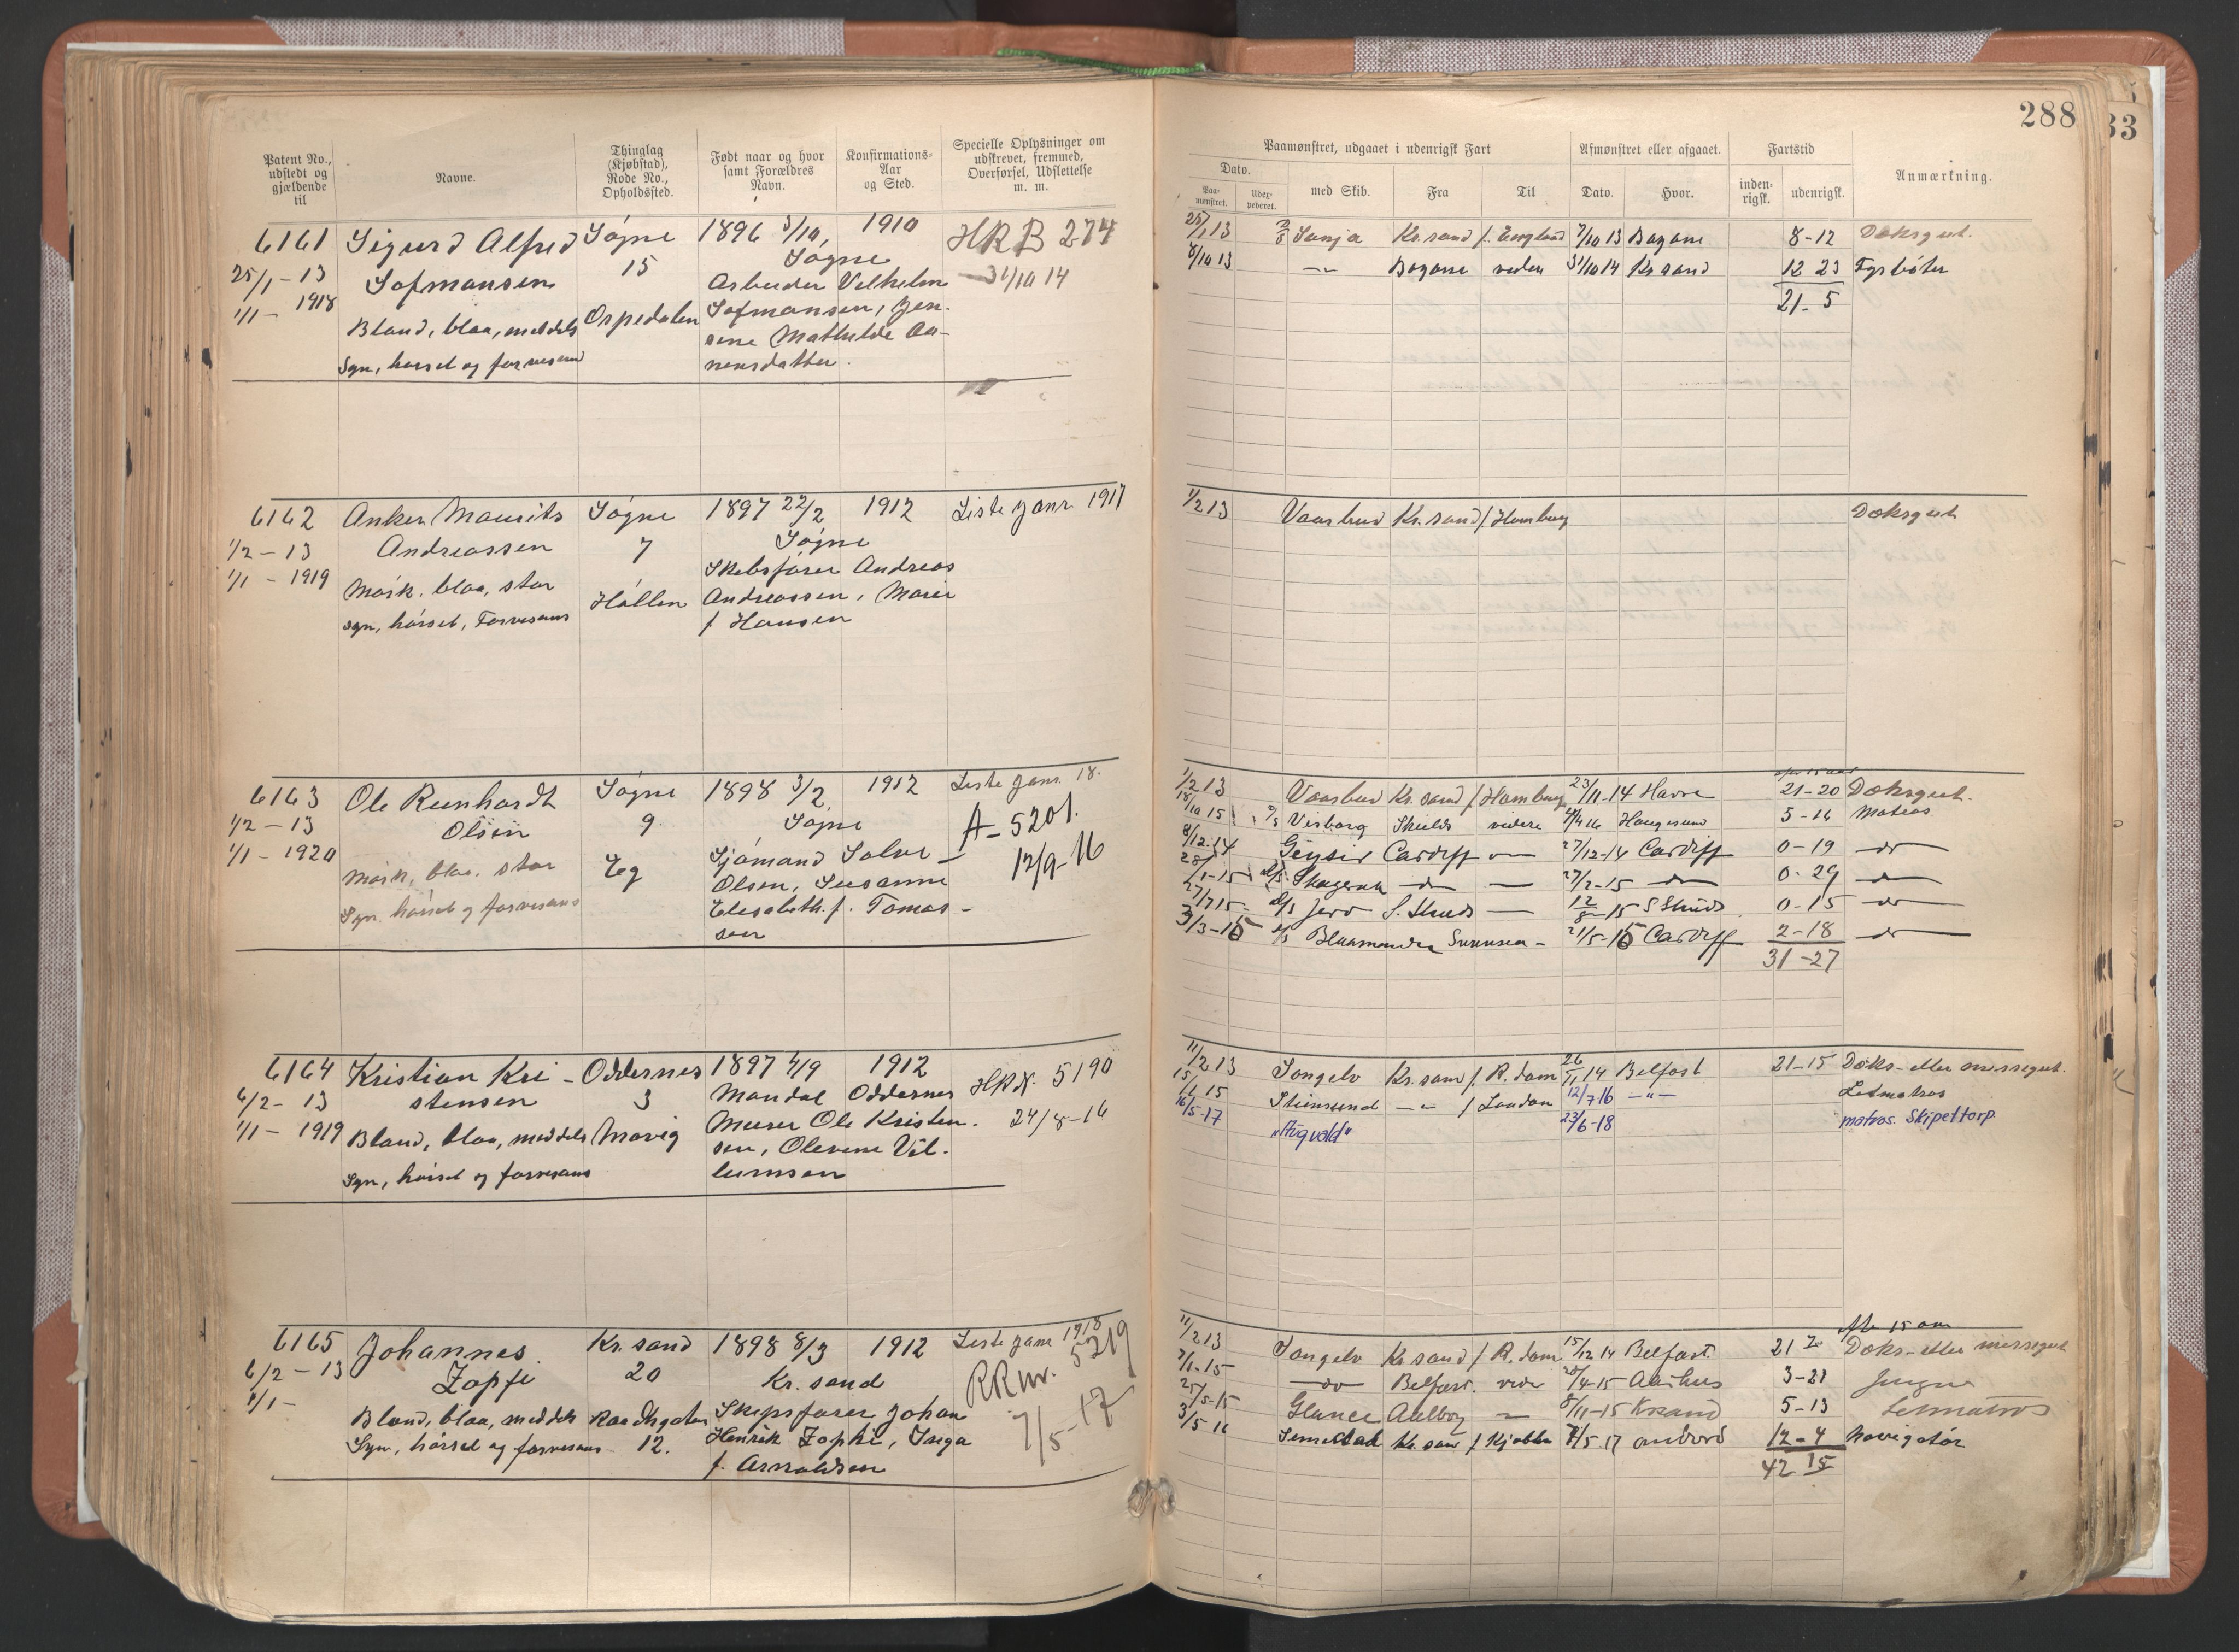 288
33
Patent No., udstedt og gjældende til
Navne.
Thinglag (Kjøbstad), Rode No., Opholdssted.
Født naar og hvor samt Forældres Navn.
Konfirmations-Aar og Sted.
Specielle Oplysninger om udskrevet, fremmed, Overførsel, Udslettelse m. m.
Paamønstret, udgaaet i udenrigsk Fart
Afmønstret eller afgaaet.
Fartstid
Anmærkning.
Dato.
Paa-mønstret.
Udex-pederet.
med Skib.
Fra
Til
Dato.
Hvor.
inden-rigsk.
udenrigsk.
6161 Sigurd Alfred Søgne 1896 3/10, 1910 HRB 274
25/1-13 Sofmansen 15 Søgne 31/10 14
1/1- 1918 Arbeider Vilhelm
Blond, blaa, middels Ospedalen Sofmansen, Jen-
sine Mathilde Aa-
Syn, hørsel og farvesans nensdatter.
25/1 13 Sonja Kr.sand f. England 7/10 13 8-12 Dæksgut.
8/10 13 viden 31/10 14 Kr sand 12 23 Fyrbøter
21-5
6162 Anker Mauritz Søgne 1897 22/2 1912 Liste Janr 1917
1/2-13 Andreassen 7 Søgne
1/1 - 1919 Skibsfører Andreas
Mørk. blaa, stor Høllen Andreassen, Marie
Syn, hørsel, Farvesans f Hansen
1/2 13 Vaarbud Kr.sand f Hamburg Dæksgut
6163 Ole Reinhardt Søgne 1898 3/2 1912 Liste Janr. 18.
1/2-13 Olsen 9 Søgne A-5201.
1/1-1920 Sjømand Salve 12/9-16
Mørk, blaa. stor Eg Olsen, Susanne
Syn, hørsel og farvesans Elisabeth f. Tomas-
sen
1/2 13 Vaarbud Kr.sand f Hamburg 23/11-14 Havre 21-20 Dæksgut.
18/10 15 Visborg Shields videre Haugesund 5-16 Matros
8/12-14 Geysir Cardiff 27/12-14 Cardiff 0-19 do
28/1-15 Skagerak do 27/2-15 do 0-29 do
27/7 15 S. Shields 12/8-15 S Shields 0-15 do
3/3-16 21/5-16 Cardiff 2-18 do
31-27
6164 Kristian Kri- Oddernes 1897 4/9 1912 HRN. 5190
6/2- 13 stensen 3 Mandal Oddernes
1/1- 1919 Murer Ole Kristen- 24/8-16
Blond, blaa, middels Møvig sen, Olevine Vil-
Syn, hørsel og farvesans lumsen
11/2 13 Songelv Kr.sand f. R.dam 26/11 14 Belfast 21-15 Dæks- eller messegut.
15/1 15 Steinsund f London 12/7 16 Letmatros
16/5-17 "Avgvald" 23/6-18 matros. Skipettorp
6165 Johannes Kr. sand 1898 8/3 1912 Liste Janr 1918
6/2-13 Zopfi 20 Kr. sand RRnr. 5219
1/1- Skipsfører Johan 7/5-17
Blond, blaa, middels Raadhgaten Henrik Zopfi, Inga
Syn, hørsel og farvesans 12. f. Arnoldsen
11/2 13 Songelv Kr sand f R.dam 15/12 14 Belfast. 21 Dæks- eller messegut
7/1-15 do Belfast. vider Aarhus 3-21 Jungm
25/5-15 Glance Aalborg 8/11-15 Krsand 5-13 Letmatros
3/5 16 Kr.sand f 7/5-17 ombord 12-4 Navigatør
42 15